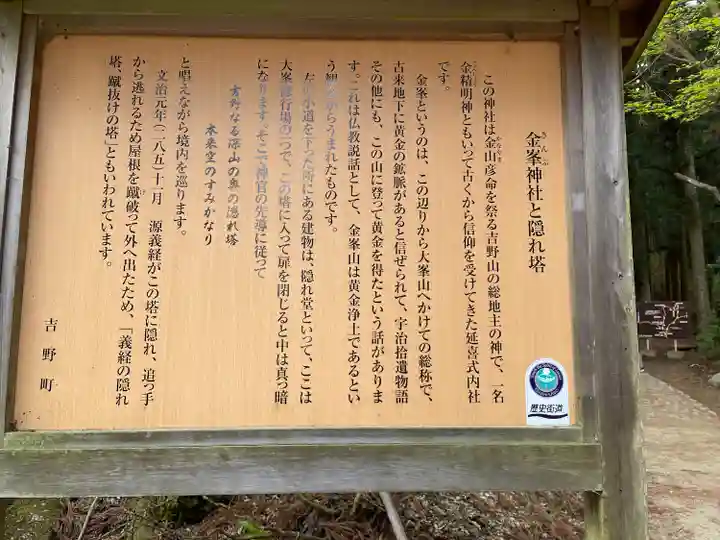 金峯神社と隠れ塔
きんぷ
この神社は金山彦命を祭る吉野山の総地主の神で、一名
金精明神ともいって古くから信仰を受けてきた延喜式内社
です。
金峯というのは、この辺りから大峯山へかけての総称で、
古来地下に黄金の鉱脈があると信ぜられて、宇治拾遺物語
その他にも、この山に登って黄金を得たという話がありま
す。これは仏教説話として、金峯山は黄金浄土であるとい
う観念からうまれたものです。
左の小道を下った所にある建物は、隠れ堂といって、ここは
大峯修行場の一つで、この塔に入って扉を閉じると中は真っ暗
になります。そこで神官の先導に従って
吉野なる深山の奥の隠れ塔
本来空のすみかなり
と唱えながら境内を巡ります。
文治元年(一一八五)十一月 源義経がこの塔に隠れ、追っ手
から逃れるため屋根を蹴破って外へ出たため、「義経の隠れ
塔、蹴抜けの塔」ともいわれています。
吉野町
歴史街道